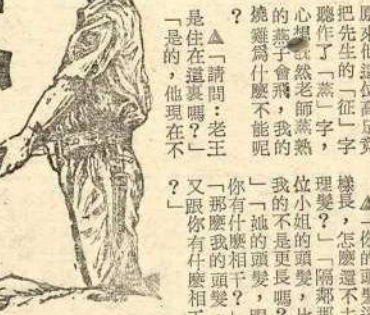 原來他這位高足竟
把先生的「征」字
聽作了「燕」字，
心想既然老師蒸熟
的燕子會飛，我的
燒雞爲什麼不能呢
？
▲「請問：老王
是住在這裏嗎？」
「是的，他現在不
▲「你的頭髮這
樣長，怎麼還不去
理髮？」「隔鄰那
位小姐的頭髮，比
我的不是更長嗎？
」「她的頭髮，跟
你有什麼相干？」
「那麼我的頭髮，
又跟你有什麼相干
？」